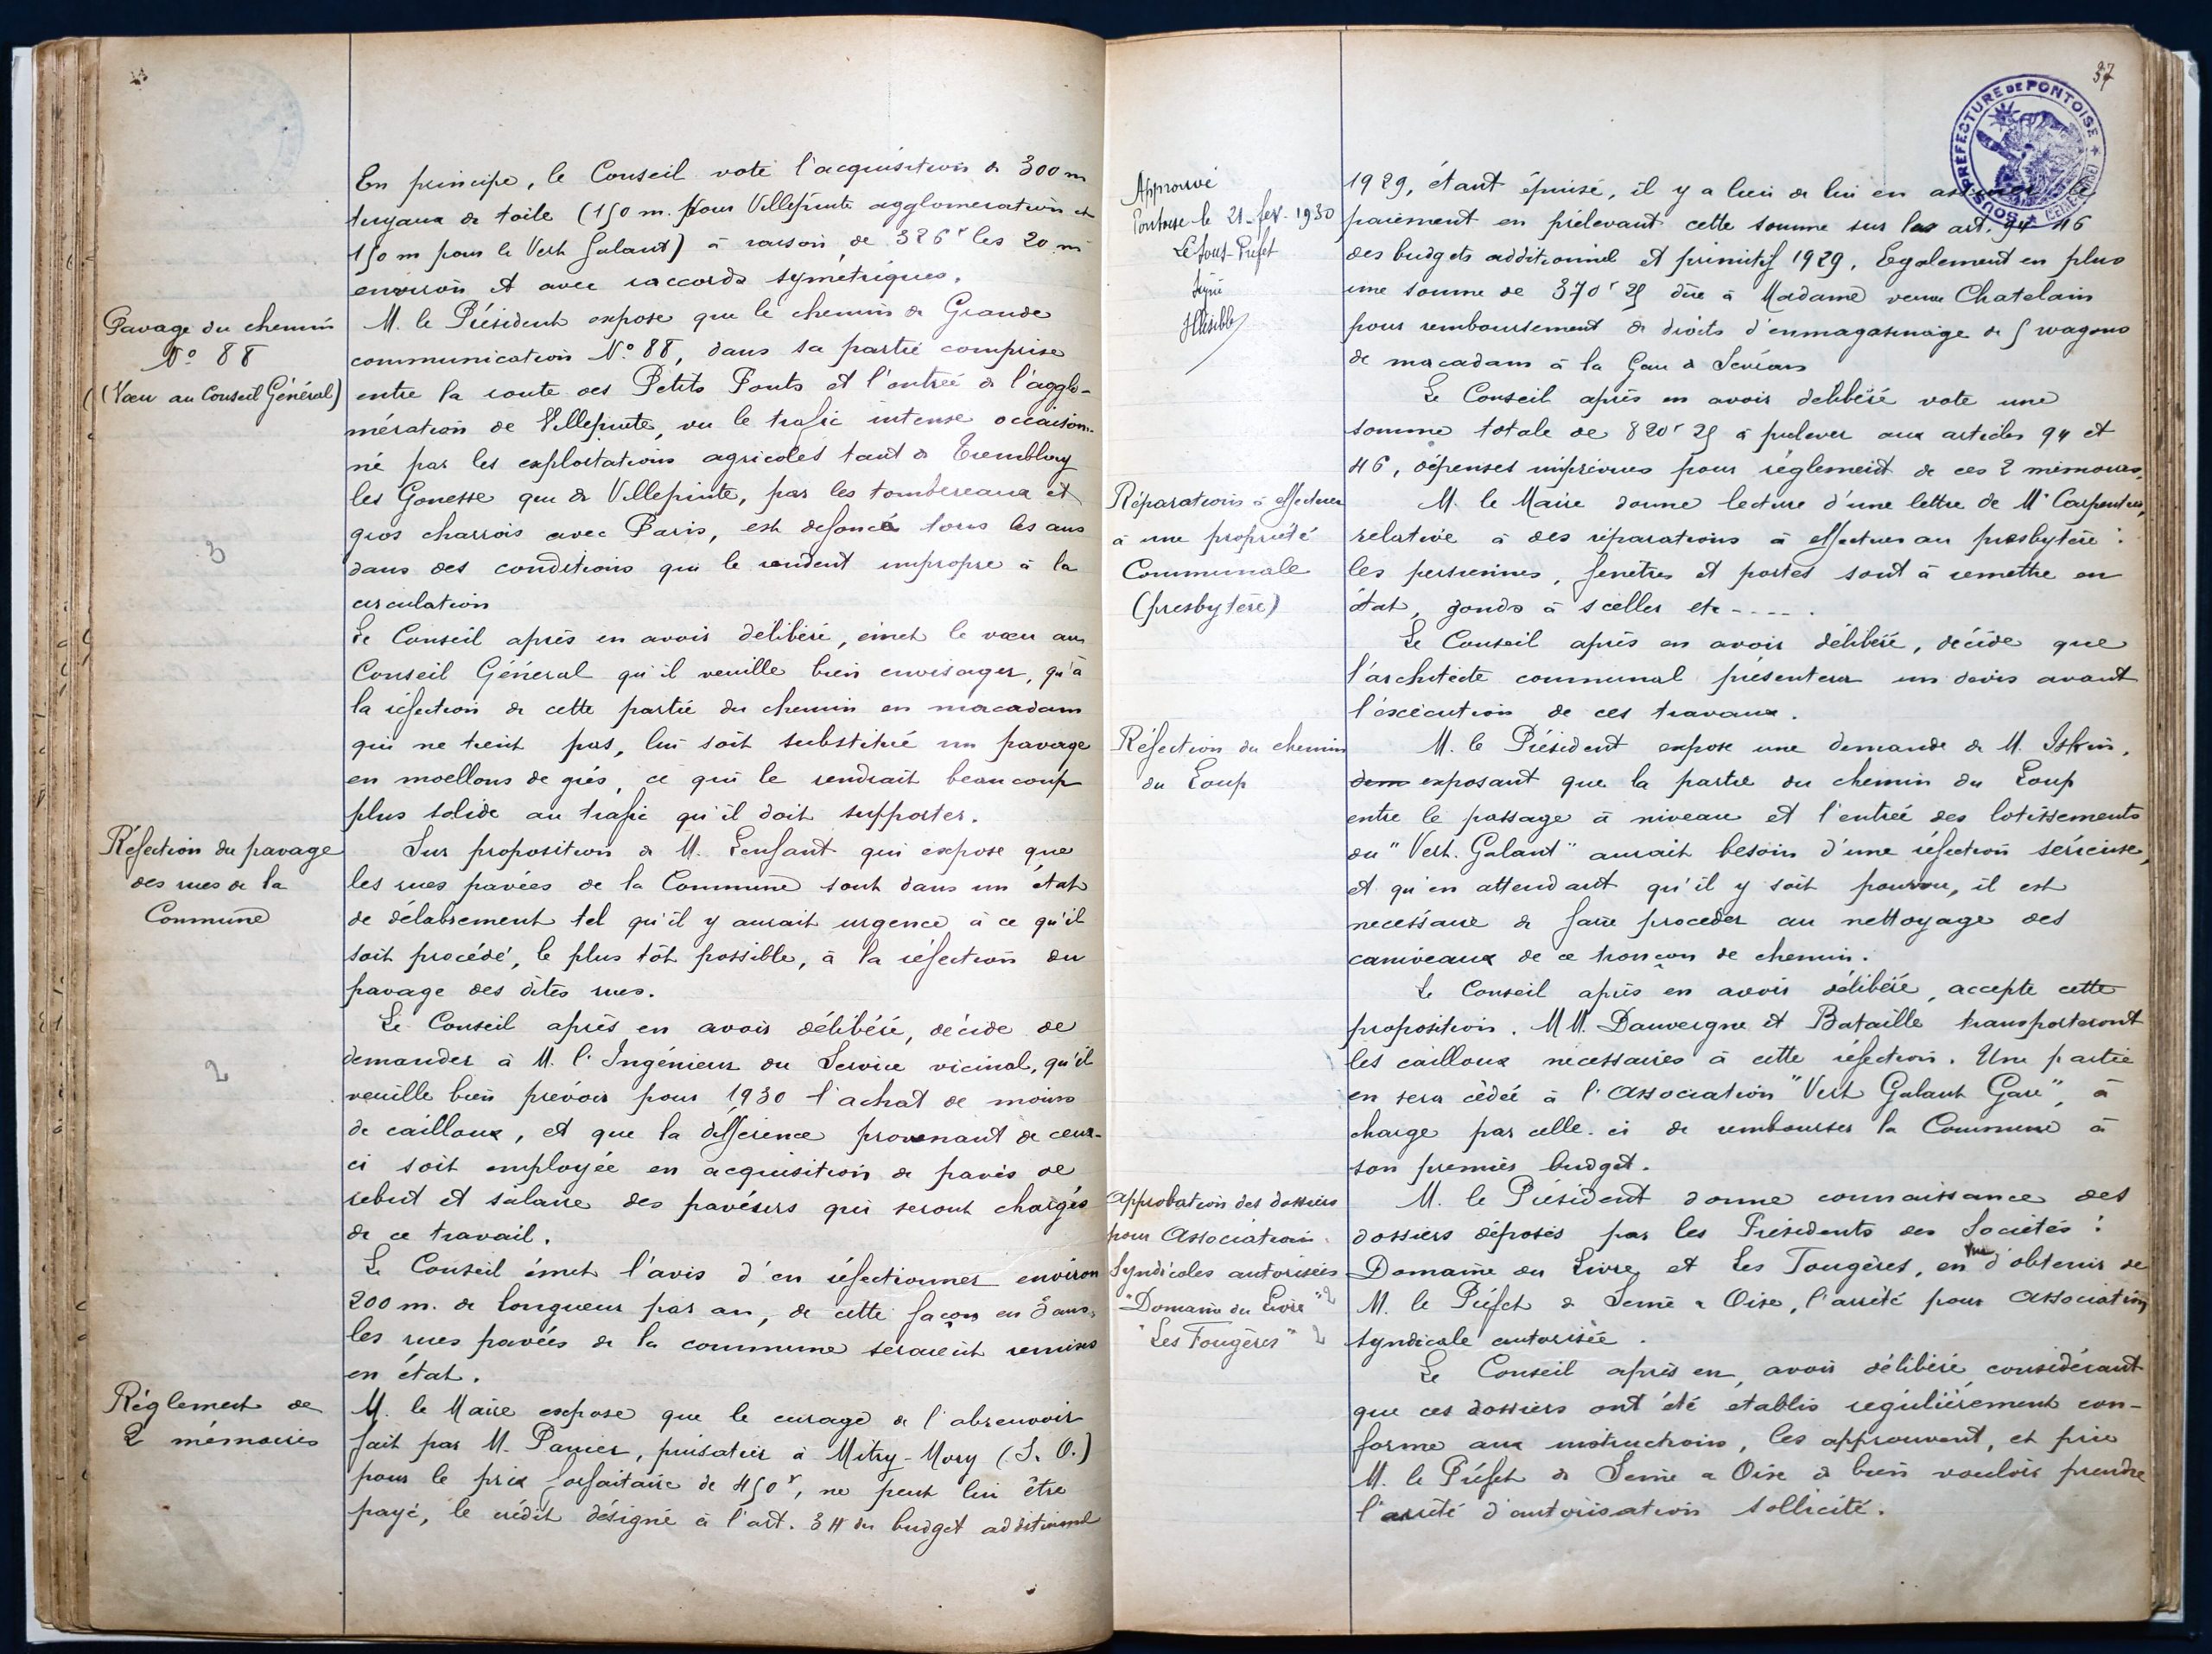 En principe, le Conseil vote l'acquisition de 300 m
tuyaux de toile (150 m. pour Villepinte agglomeration et
150 m pour le Vert Galant) à raison de 326f les 20 m
environ et avec raccords symétriques.
Pavage du chemin
N° 88
(Vœu au Conseil Général)
M. le Président expose que le chemin de Grande
communication N° 88, dans sa partie comprise
entre la route des Petits Ponts et l'entrée de l'agglo-
mération de Villepinte, vu le trafic intense occasion-
né par les exploitations agricoles tant de Tremblay
les Gonesse que de Villepinte, par les tombereaux et
gros charrois avec Paris, est défoncé tous les ans
dans des conditions qui le rendent impropre à la
circulation
3
Le Conseil après en avoir délibéré, émet le vœu au
Conseil Général qu'il veuille bien envisager, qu'à
la réfection de cette partie du chemin en macadam
qui ne tient pas, lui soit substitué un pavage
en moellons de grés, ce qui le rendrait beaucoup
plus solide au trafic qu'il doit supporter.
Réfection du pavage
des rues de la
Commune
Sur proposition de M. Lenfant qui expose que
les rues pavées de la Commune sont dans un état
de délabrement tel qu'il y aurait urgence à ce qu'il
soit procédé, le plus tôt possible, à la réfection du
pavage des dites rues.
2
Le Conseil après en avoir délibéré, décide de
demander à M. l'Ingénieur du Service vicinal, qu'il
veuille bien prévoir pour 1930 l'achat de moins
de cailloux, et que la différence provenant de ceux-
ci soit employée en acquisition de pavés de
rebut et salaire des paveurs qui seront chargés
de ce travail.
Le Conseil émet l'avis d'en réfectionner environ
200 m. de longueur par an, de cette façon en 3 ans,
les rues pavées de la commune seraient remises
en état.
Réglement de
2 mémoires
M. le Maire expose que le curage de l'abreuvoir
fait par M. Panier, puisatier à Mitry-Mory (S. O.)
pour le prix forfaitaire de 450f, ne peut lui être
payé, le crédit désigné à l'art. 34 du budget additionnel
37
SOUS-PREFECTURE DE PONTOISE
Approuvé
Pontoise le 21 fev. 1930
Le Sous-Préfet
Signé
Illisible
1929, étant épuisé, il y a lieu de lui en assurer le
paiement en prélevant cette somme sur les art. 94 46
des budgets additionnel et primitif 1929. Egalement en plus
une somme de 370f 25 dûe à Madame veuve Chatelain
pour remboursement de droits d'enmagasinage de 5 wagons
de macadam à la Gare de Sevran
Le Conseil après en avoir delibéré vote une
somme totale de 820f 25 à prelever aux articles 94 et
46, dépenses imprévues pour réglement de ces 2 mémoires.
Réparations à effectuer
à une propriété
Communale
(presbytère)
M. le Maire donne lecture d'une lettre de Mr Carpentier,
relative à des réparations à effectuer au presbytère :
les persiennes, fenêtres et portes sont à remettre en
état, gonds à sceller etc - - - - .
Le Conseil après en avoir délibéré, décide que
l'architecte communal présentera un devis avant
l'éxécution de ces travaux.
Réfection du chemin
du Loup
M. le Président expose une demande de M.
dem exposant que la partie du chemin du Loup
entre le passage à niveau et l'entrée des lotissements
du "Vert-Galant" aurait besoin d'une réfection sérieuse,
et qu'en attendant qu'il y soit pourvu, il est
necessaire de faire proceder au nettoyage des
caniveaux de ce tronçon de chemin.
Le Conseil après en avoir délibéré, accepte cette
proposition. MM. Dauvergne et Bataille transporteront
les cailloux necessaires à cette réfection. Une partie
en sera cédée à l'Association "Vert Galant Gare", à
charge par celle-ci de rembourser la Commune à
son premier budget.
Approbation des dossiers
pour Association
Syndicales autorisées
"Domaine du Livre" 2
"Les Fougères" 2
M. le Président donne connaissance des
dossiers déposés par les Présidents des Sociétés :
Domaine du Livre et Les Fougères, en vue d'obtenir de
M. le Préfet de Seine & Oise, l'arrêté pour Association
syndicale autorisée.
Le Conseil après en avoir délibéré, considérant
que ces dossiers ont été etablis régulièrement con-
forme aux instructions, les approuvent, et prie
M. le Préfet de Seine & Oise de bien vouloir prendre
l'arrêté d'autorisation sollicité.